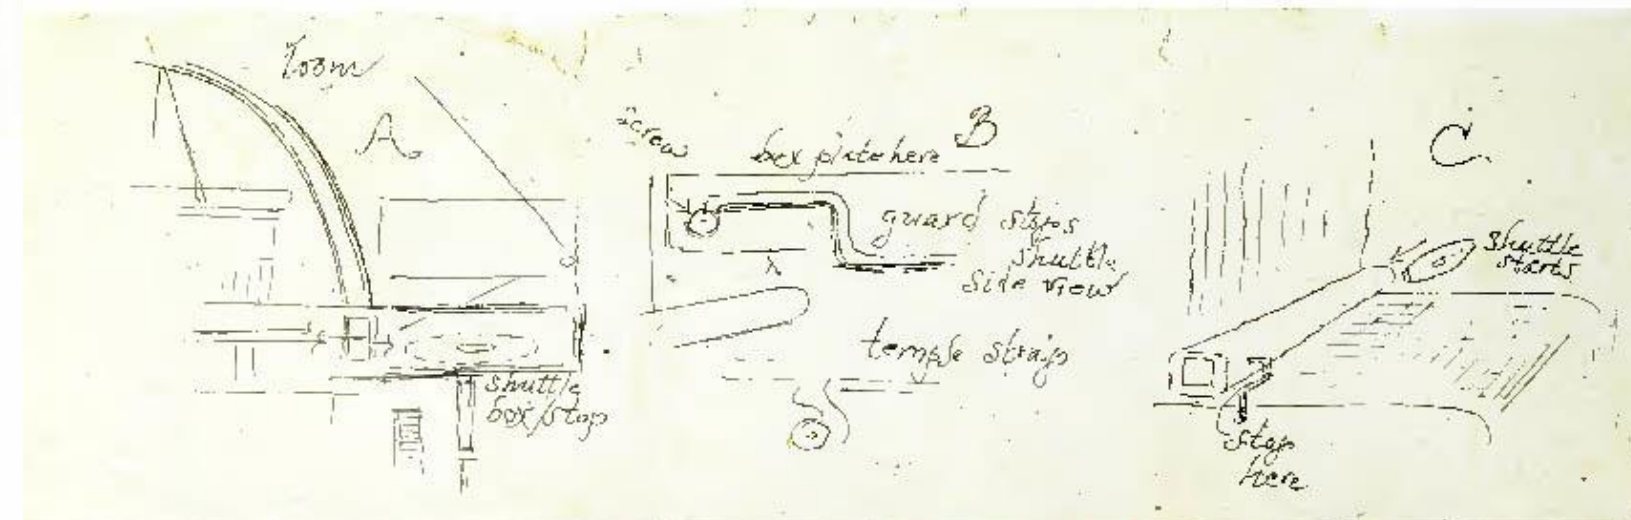 Loom
A.
shuttle
box/stop
Screw
box plate here
B
guard stops
shuttle
side view
temple strap
C.
shuttle
starts
stop
here